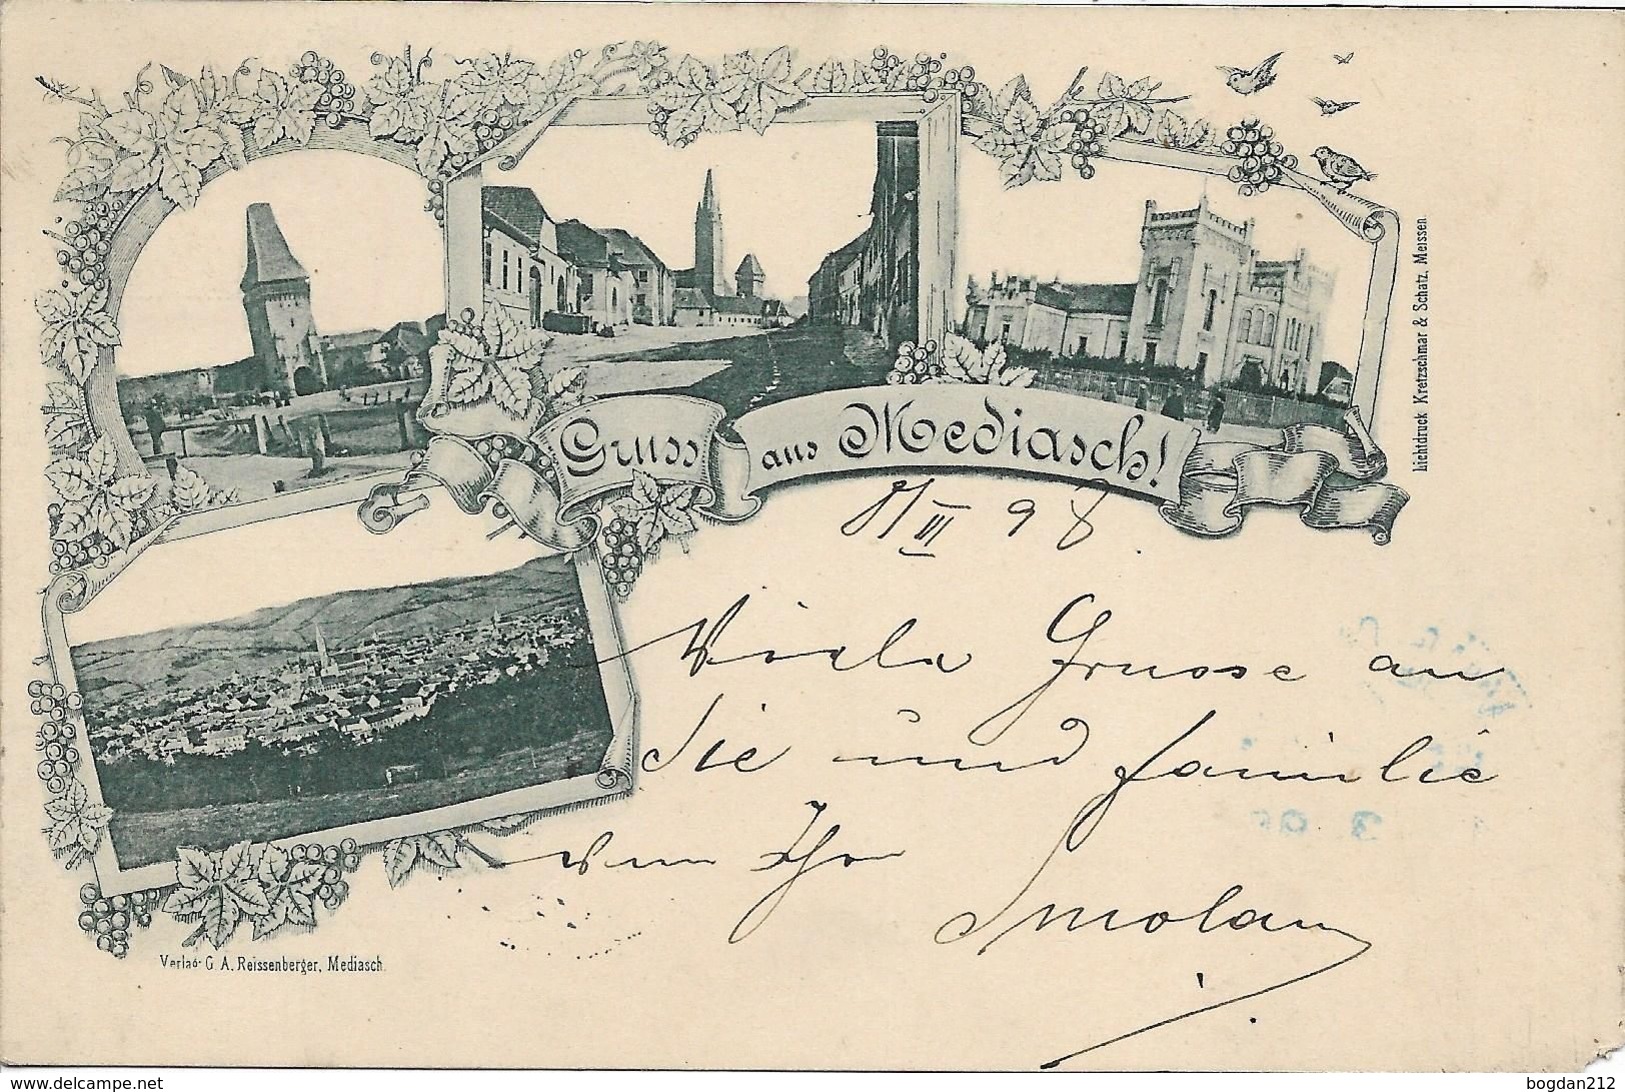 Gruss aus Mediasch!
Lichtdruck Kretzschmar & Schatz, Meissen.
III 98.
Viele Grusse an
Sie und familie
vom Ihr
Smolan
Verlag G. A. Reissenberger, Mediasch.
delcampe.net
bogdan212